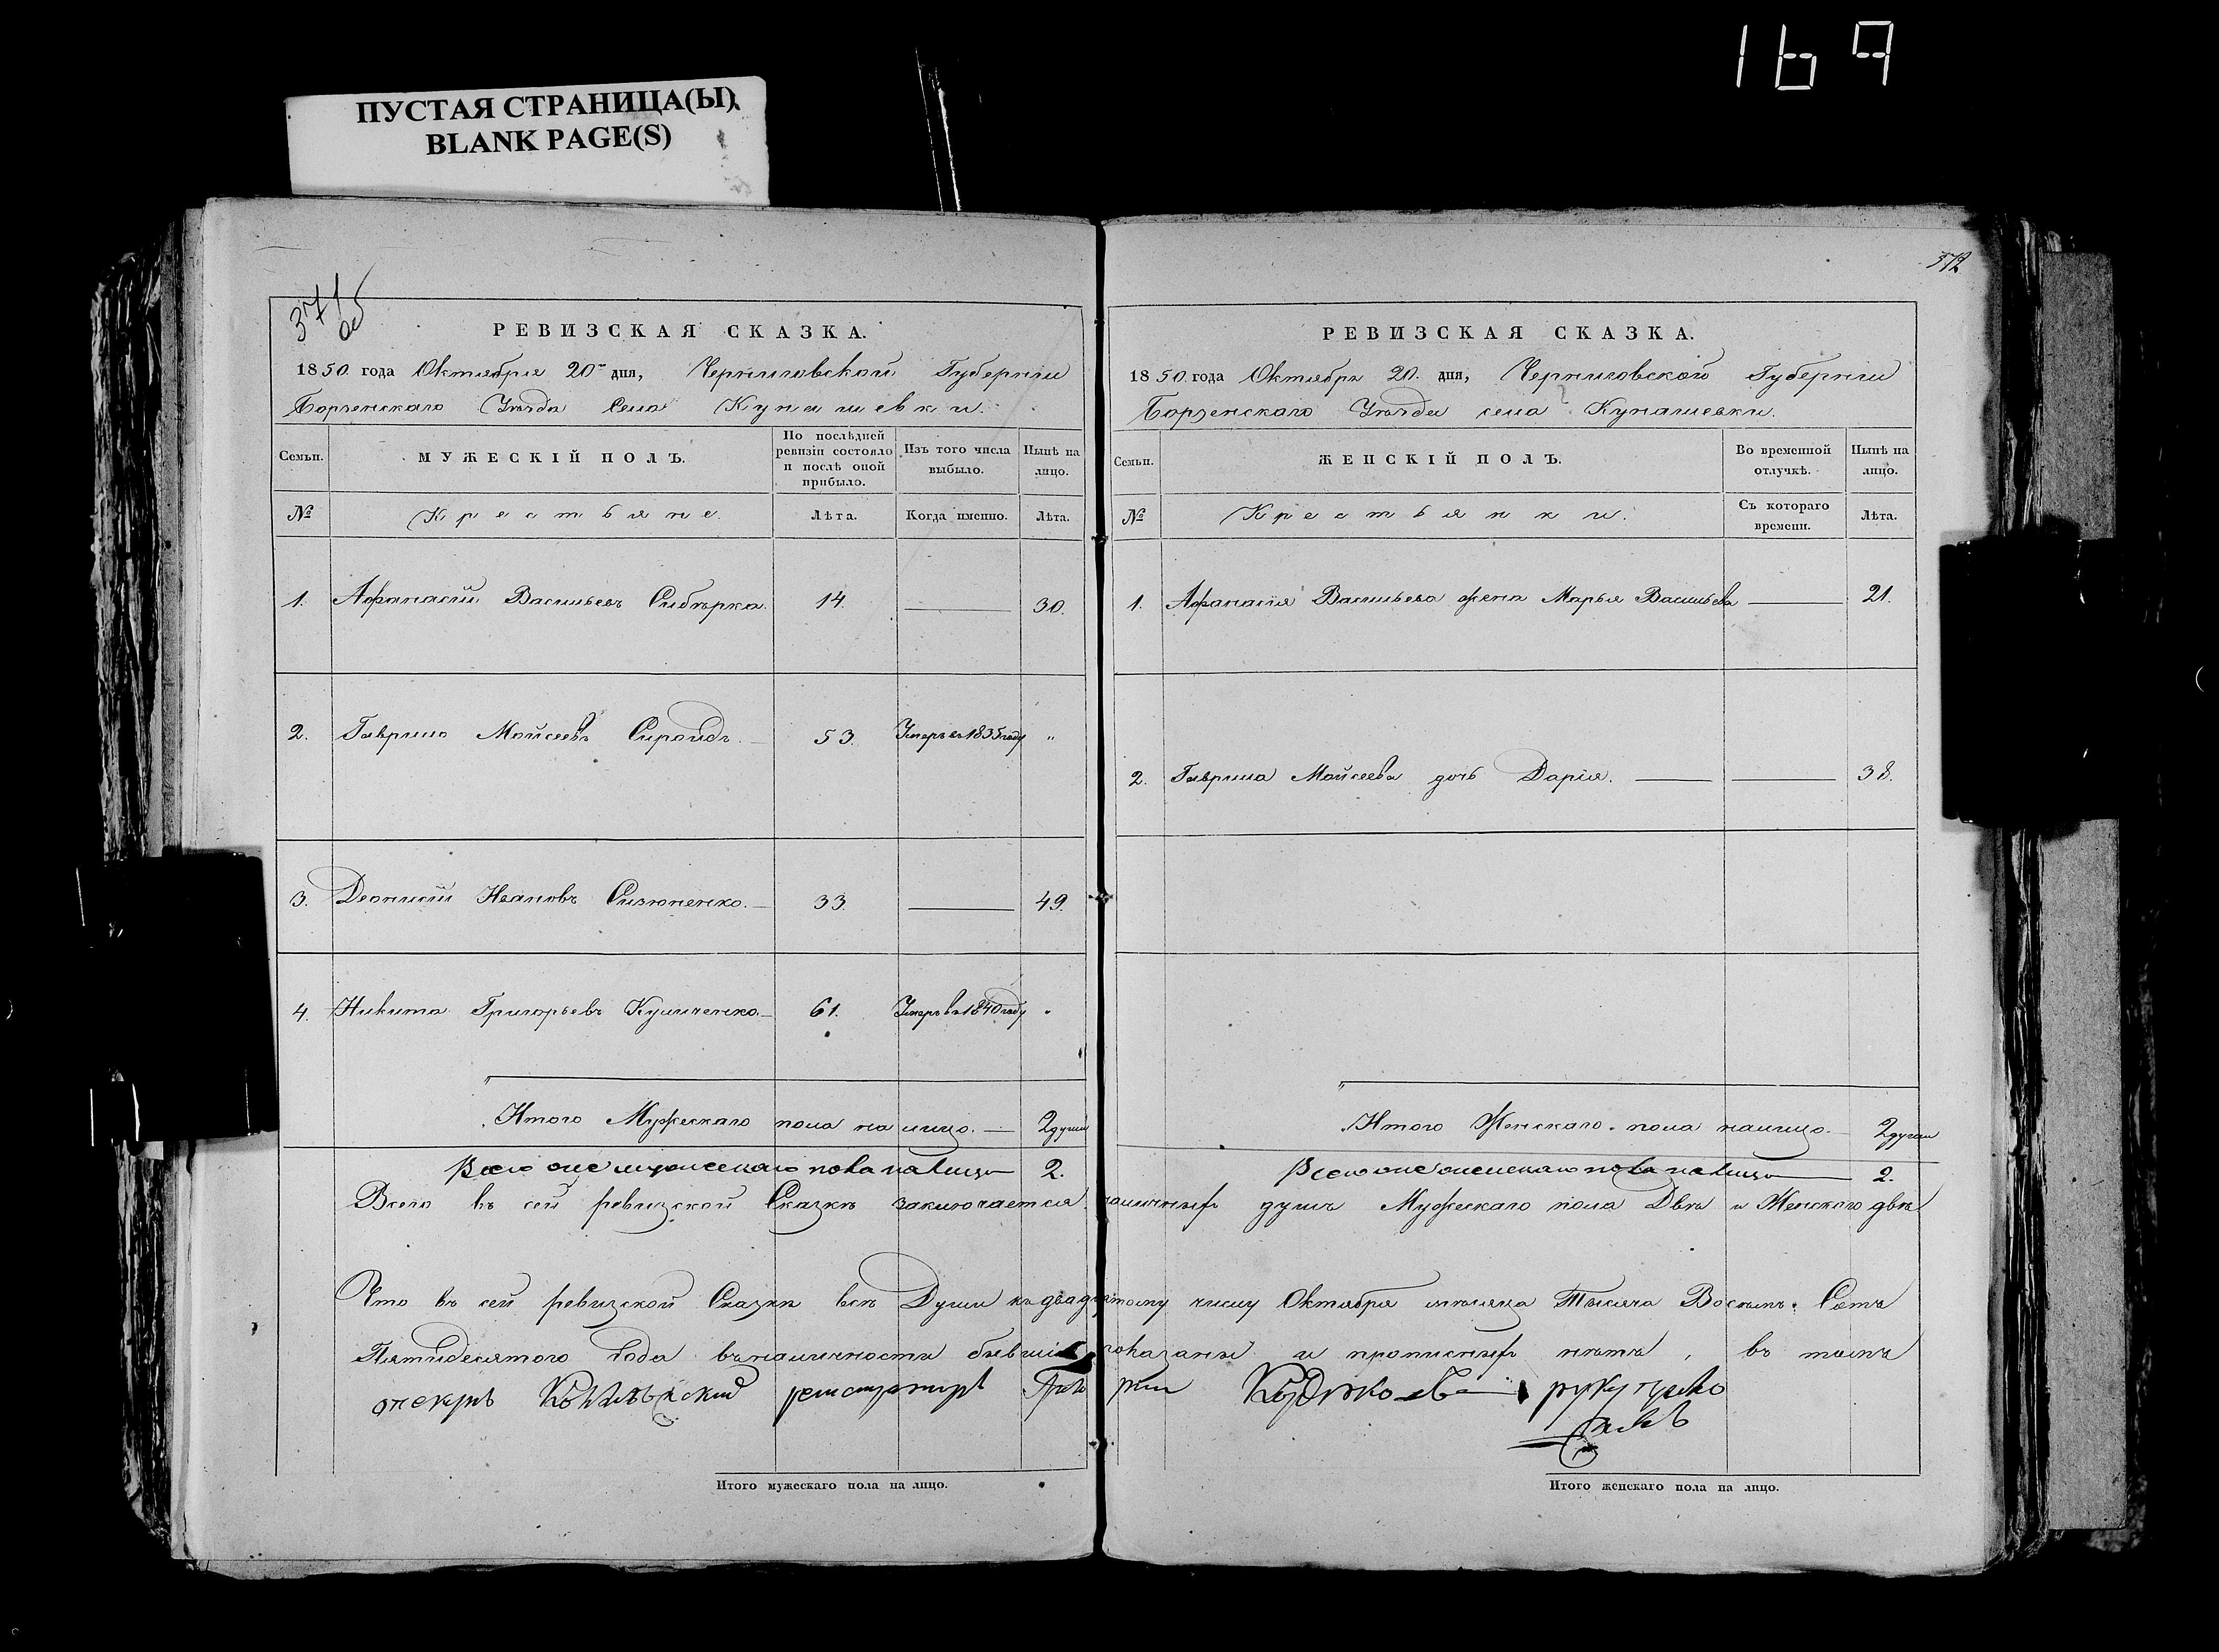 169
ПУСТАЯ СТРАНИЦА(Ы)
BLANK PAGE(S)
371 об
372
РЕВИЗСКАЯ СКАЗКА.
1850. года Октября 20го дня, Черниговской Губерніи
Борзенскаго Уѣзда Села Кунашевки.
Семьи. МУЖЕСКІЙ ПОЛЪ. По послѣдней ревизіи состояло и послѣ оной прибыло. Изъ того числа выбыло. Нынѣ на лицо.
№ Крестьяне. Лѣта. Когда именно. Лѣта.
1. Афанасій Васильевъ Сибѣрка. 14. — 30.
2. Гаврило Мойсеевъ Сироидъ. — 53. Умеръ въ 1835 году "
3. Деонисій Ивановъ Сизоненко. — 33. — 49.
4. Никита Григорьевъ Куличенко. — 61. Умеръ въ 1840 году "
Итого Мужескаго пола на лицо. — 2 души
Всего оне мужескаго пола на лицо — 2.
РЕВИЗСКАЯ СКАЗКА.
1850. года Октября 20. дня, Черниговской Губерніи
Борзенскаго Уѣзда села Кунашевки.
Семьи. ЖЕНСКІЙ ПОЛЪ. Во временной отлучкѣ. Нынѣ на лицо.
№ Крестьянки. Съ котораго времени. Лѣта.
1. Афанасія Васильева жена Марья Васильева — 21.
2. Гаврила Мойсеева дочь Дарія. — — 38.
Итого Женскаго пола налицо. — 2 души
Всего оне женскаго пола на лицо — 2.
Всего въ сей ревизской Сказкѣ заключается наличныхъ душъ Мужескаго пола Двѣ и Женскаго двѣ
Что въ сей ревизской Сказки всѣ Души къ двадцатому числу Октября мѣсяца Тысяча Восемь Сотъ
Пятидесятого Года въ наличности бывшіе показаны и прописныхъ нѣтъ, въ томъ
опекунъ регистраторъ руку
Итого мужескаго пола на лицо.
Итого женскаго пола на лицо.